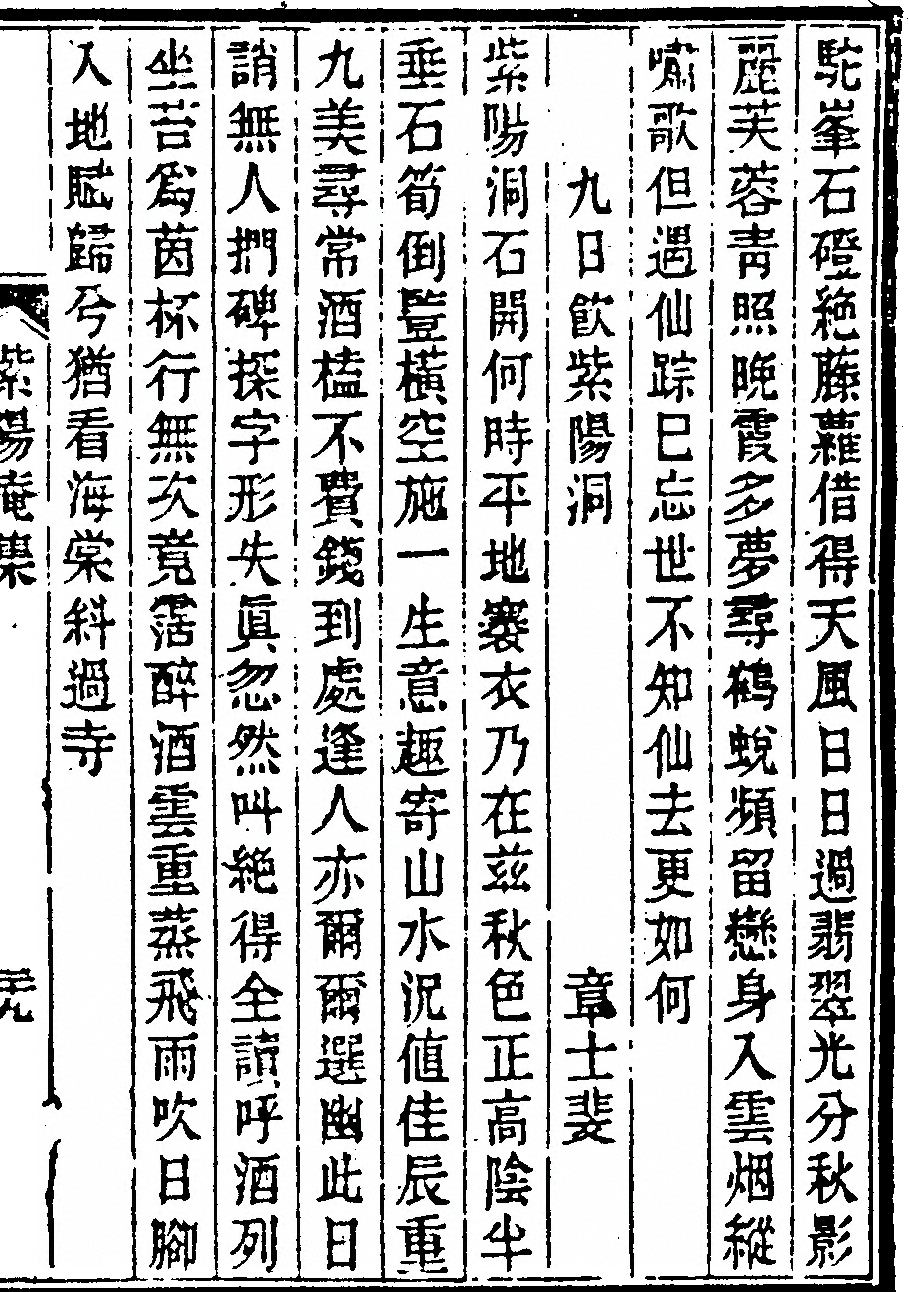 駝峯石磴絶藤蘿借得天風日日過翡翠光分秋影
麗芙蓉靑照晚霞多夢尋鶴蛻頻留戀身入雲烟縱
嘯歌但遇仙踪巳忘世不知仙去更如何
九日飮紫陽洞　章士斐
紫陽洞石開何時平地褰衣乃在兹秋色正高陰半
垂石筍倒豎橫空施一生意趣寄山水況値佳辰重
九美尋常酒榼不費錢到處逢人亦爾爾選幽此日
誚無人捫碑探字形失眞忽然叫絶得全讀呼酒列
坐苔爲茵杯行無次竟霑醉酒雲重蒸飛雨吹日腳
入地賦歸兮猶看海棠斜過寺
紫陽庵集
元